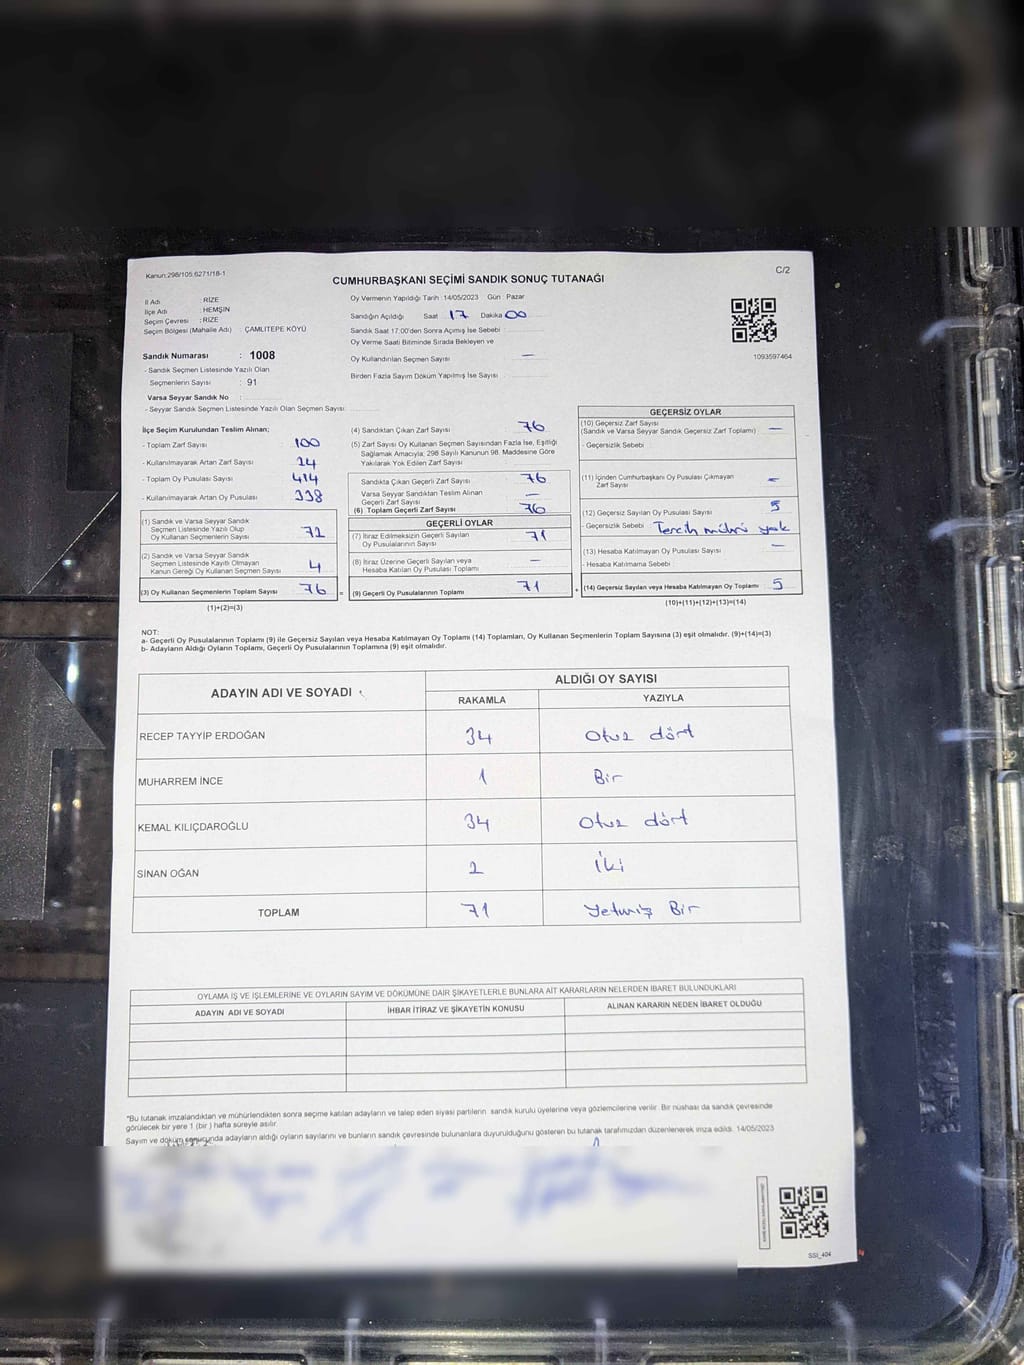 Kanun:298/105;6271/18-1
C/2
CUMHURBAŞKANI SEÇİMİ SANDIK SONUÇ TUTANAĞI
İl Adı : RİZE
İlçe Adı : HEMŞİN
Seçim Çevresi : RİZE
Seçim Bölgesi (Mahalle Adı) : ÇAMLITEPE KÖYÜ
Sandık Numarası : 1008
- Sandık Seçmen Listesinde Yazılı Olan
Seçmenlerin Sayısı : 91
Varsa Seyyar Sandık No :
- Seyyar Sandık Seçmen Listesinde Yazılı Olan Seçmen Sayısı:
Oy Vermenin Yapıldığı Tarih :14/05/2023 Gün : Pazar
Sandığın Açıldığı Saat 17 Dakika 00
Sandık Saat 17:00'den Sonra Açmış İse Sebebi :
Oy Verme Saati Bitiminde Sırada Bekleyen ve
Oy Kullandırılan Seçmen Sayısı —
Birden Fazla Sayım Döküm Yapılmış İse Sayısı
1093597464
İlçe Seçim Kurulundan Teslim Alınan;
- Toplam Zarf Sayısı : 100
- Kullanılmayarak Artan Zarf Sayısı : 24
- Toplam Oy Pusulası Sayısı : 414
- Kullanılmayarak Artan Oy Pusulası : 338
(1) Sandık ve Varsa Seyyar Sandık
Seçmen Listesinde Yazılı Olup
Oy Kullanan Seçmenlerin Sayısı 72
(2) Sandık ve Varsa Seyyar Sandık
Seçmen Listesinde Kayıtlı Olmayan
Kanun Gereği Oy Kullanan Seçmen Sayısı 4
(3) Oy Kullanan Seçmenlerin Toplam Sayısı 76 =
(1)+(2)=(3)
(4) Sandıktan Çıkan Zarf Sayısı 76
(5) Zarf Sayısı Oy Kullanan Seçmen Sayısından Fazla İse, Eşitliği
Sağlamak Amacıyla; 298 Sayılı Kanunun 98. Maddesine Göre
Yakılarak Yok Edilen Zarf Sayısı :
Sandıkta Çıkan Geçerli Zarf Sayısı 76
Varsa Seyyar Sandıktan Teslim Alınan
Geçerli Zarf Sayısı —
(6) Toplam Geçerli Zarf Sayısı 76
GEÇERLİ OYLAR
(7) İtiraz Edilmeksizin Geçerli Sayılan
Oy Pusulalarının Sayısı 71
(8) İtiraz Üzerine Geçerli Sayılan veya
Hesaba Katılan Oy Pusulası Toplamı —
(9) Geçerli Oy Pusulalarının Toplamı 71 +
GEÇERSİZ OYLAR
(10) Geçersiz Zarf Sayısı
(Sandık ve Varsa Seyyar Sandık Geçersiz Zarf Toplamı) —
- Geçersizlik Sebebi
(11) İçinden Cumhurbaşkanı Oy Pusulası Çıkmayan
Zarf Sayısı —
(12) Geçersiz Sayılan Oy Pusulası Sayısı 5
- Geçersizlik Sebebi Tercih mührü yok
(13) Hesaba Katılmayan Oy Pusulası Sayısı —
- Hesaba Katılmama Sebebi
(14) Geçersiz Sayılan veya Hesaba Katılmayan Oy Toplamı 5
(10)+(11)+(12)+(13)=(14)
NOT:
a- Geçerli Oy Pusulalarının Toplamı (9) ile Geçersiz Sayılan veya Hesaba Katılmayan Oy Toplamı (14) Toplamları, Oy Kullanan Seçmenlerin Toplam Sayısına (3) eşit olmalıdır. (9)+(14)=(3)
b- Adayların Aldığı Oyların Toplamı, Geçerli Oy Pusulalarının Toplamına (9) eşit olmalıdır.
ADAYIN ADI VE SOYADI ALDIĞI OY SAYISI
RAKAMLA YAZIYLA
RECEP TAYYİP ERDOĞAN 34 Otuz dört
MUHARREM İNCE 1 Bir
KEMAL KILIÇDAROĞLU 34 Otuz dört
SİNAN OĞAN 2 İki
TOPLAM 71 Yetmiş Bir
OYLAMA İŞ VE İŞLEMLERİNE VE OYLARIN SAYIM VE DÖKÜMÜNE DAİR ŞİKAYETLERLE BUNLARA AİT KARARLARIN NELERDEN İBARET BULUNDUKLARI
ADAYIN ADI VE SOYADI İHBAR İTİRAZ VE ŞİKAYETİN KONUSU ALINAN KARARIN NEDEN İBARET OLDUĞU
*Bu tutanak imzalandıktan ve mühürlendikten sonra seçime katılan adayların ve talep eden siyasi partilerin sandık kurulu üyelerine veya gözlemcilerine verilir. Bir nüshası da sandık çevresinde
görülecek bir yere 1 (bir ) hafta süreyle asılır.
Sayım ve döküm sonucunda adayların aldığı oyların sayılarını ve bunların sandık çevresinde bulunanlara duyurulduğunu gösteren bu tutanak tarafımızdan düzenlenerek imza edildi. 14/05/2023
SSI_404